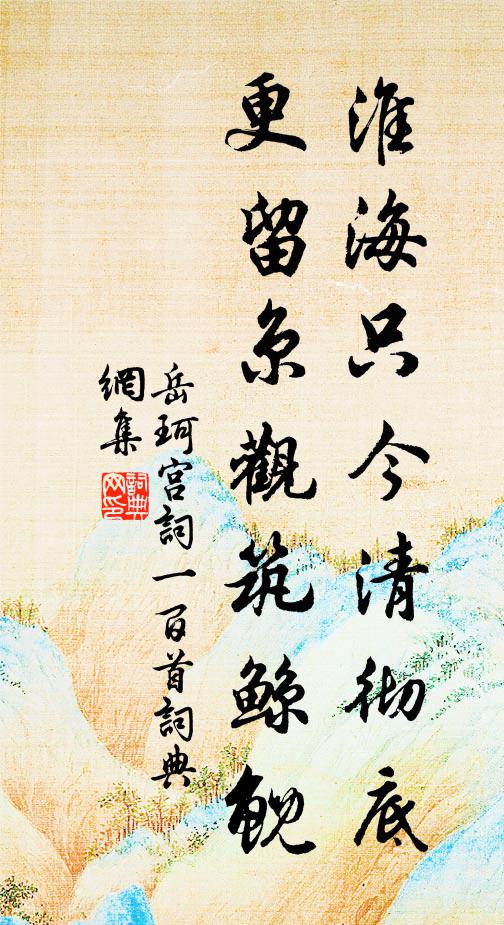 淮海只今清彻底
更留京觀筑鲸鲵
岳珂宫詞一百首詞典
網集
詞典
网印